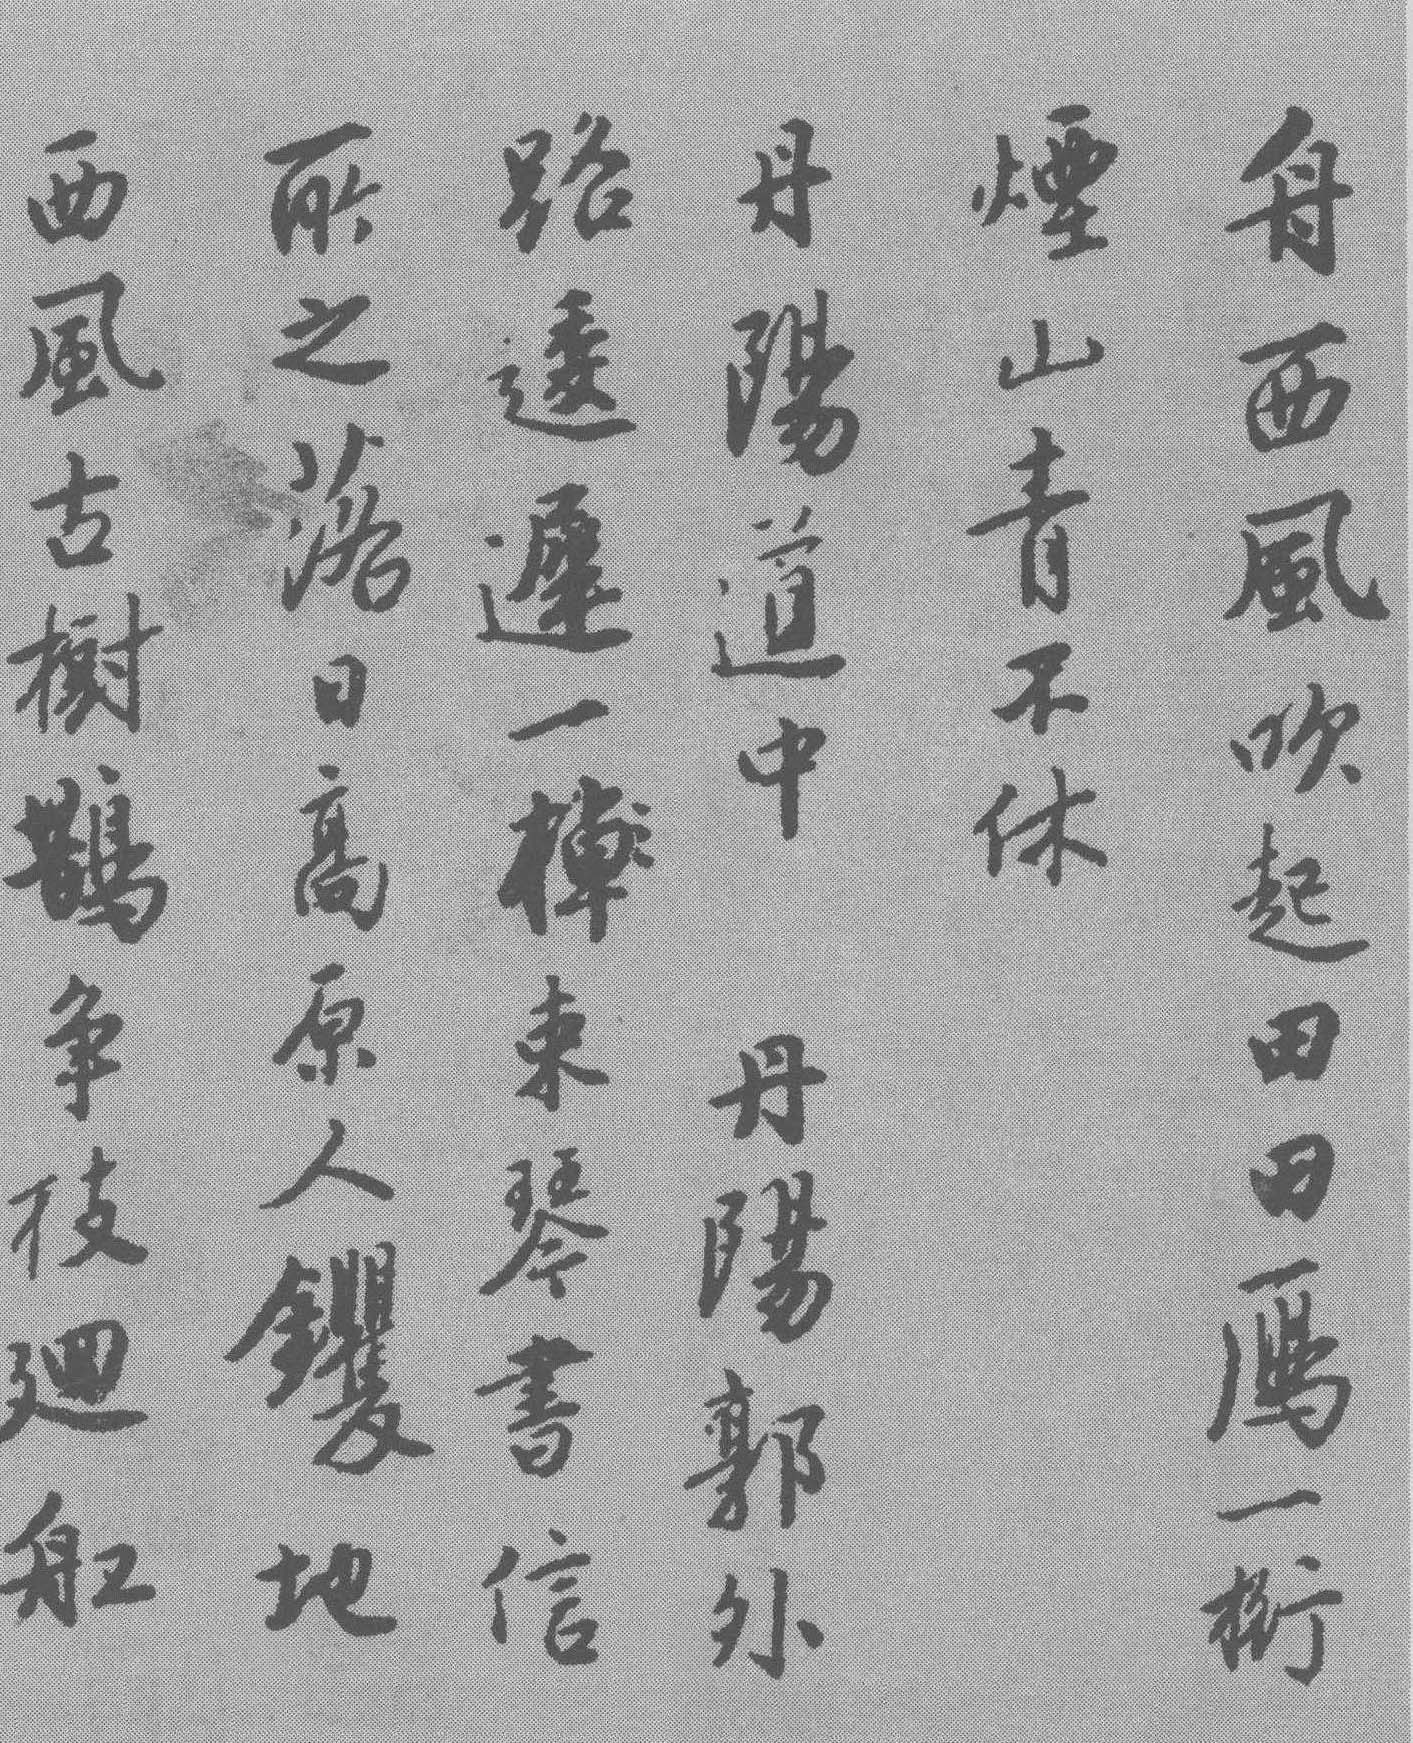 舟西風吹起田田鴈一桁
煙山青不休
丹陽道中 丹陽郭外
路逶遲一棹束琴書信
所之落日高原人钁地
西風古樹鵲爭枝廻舡